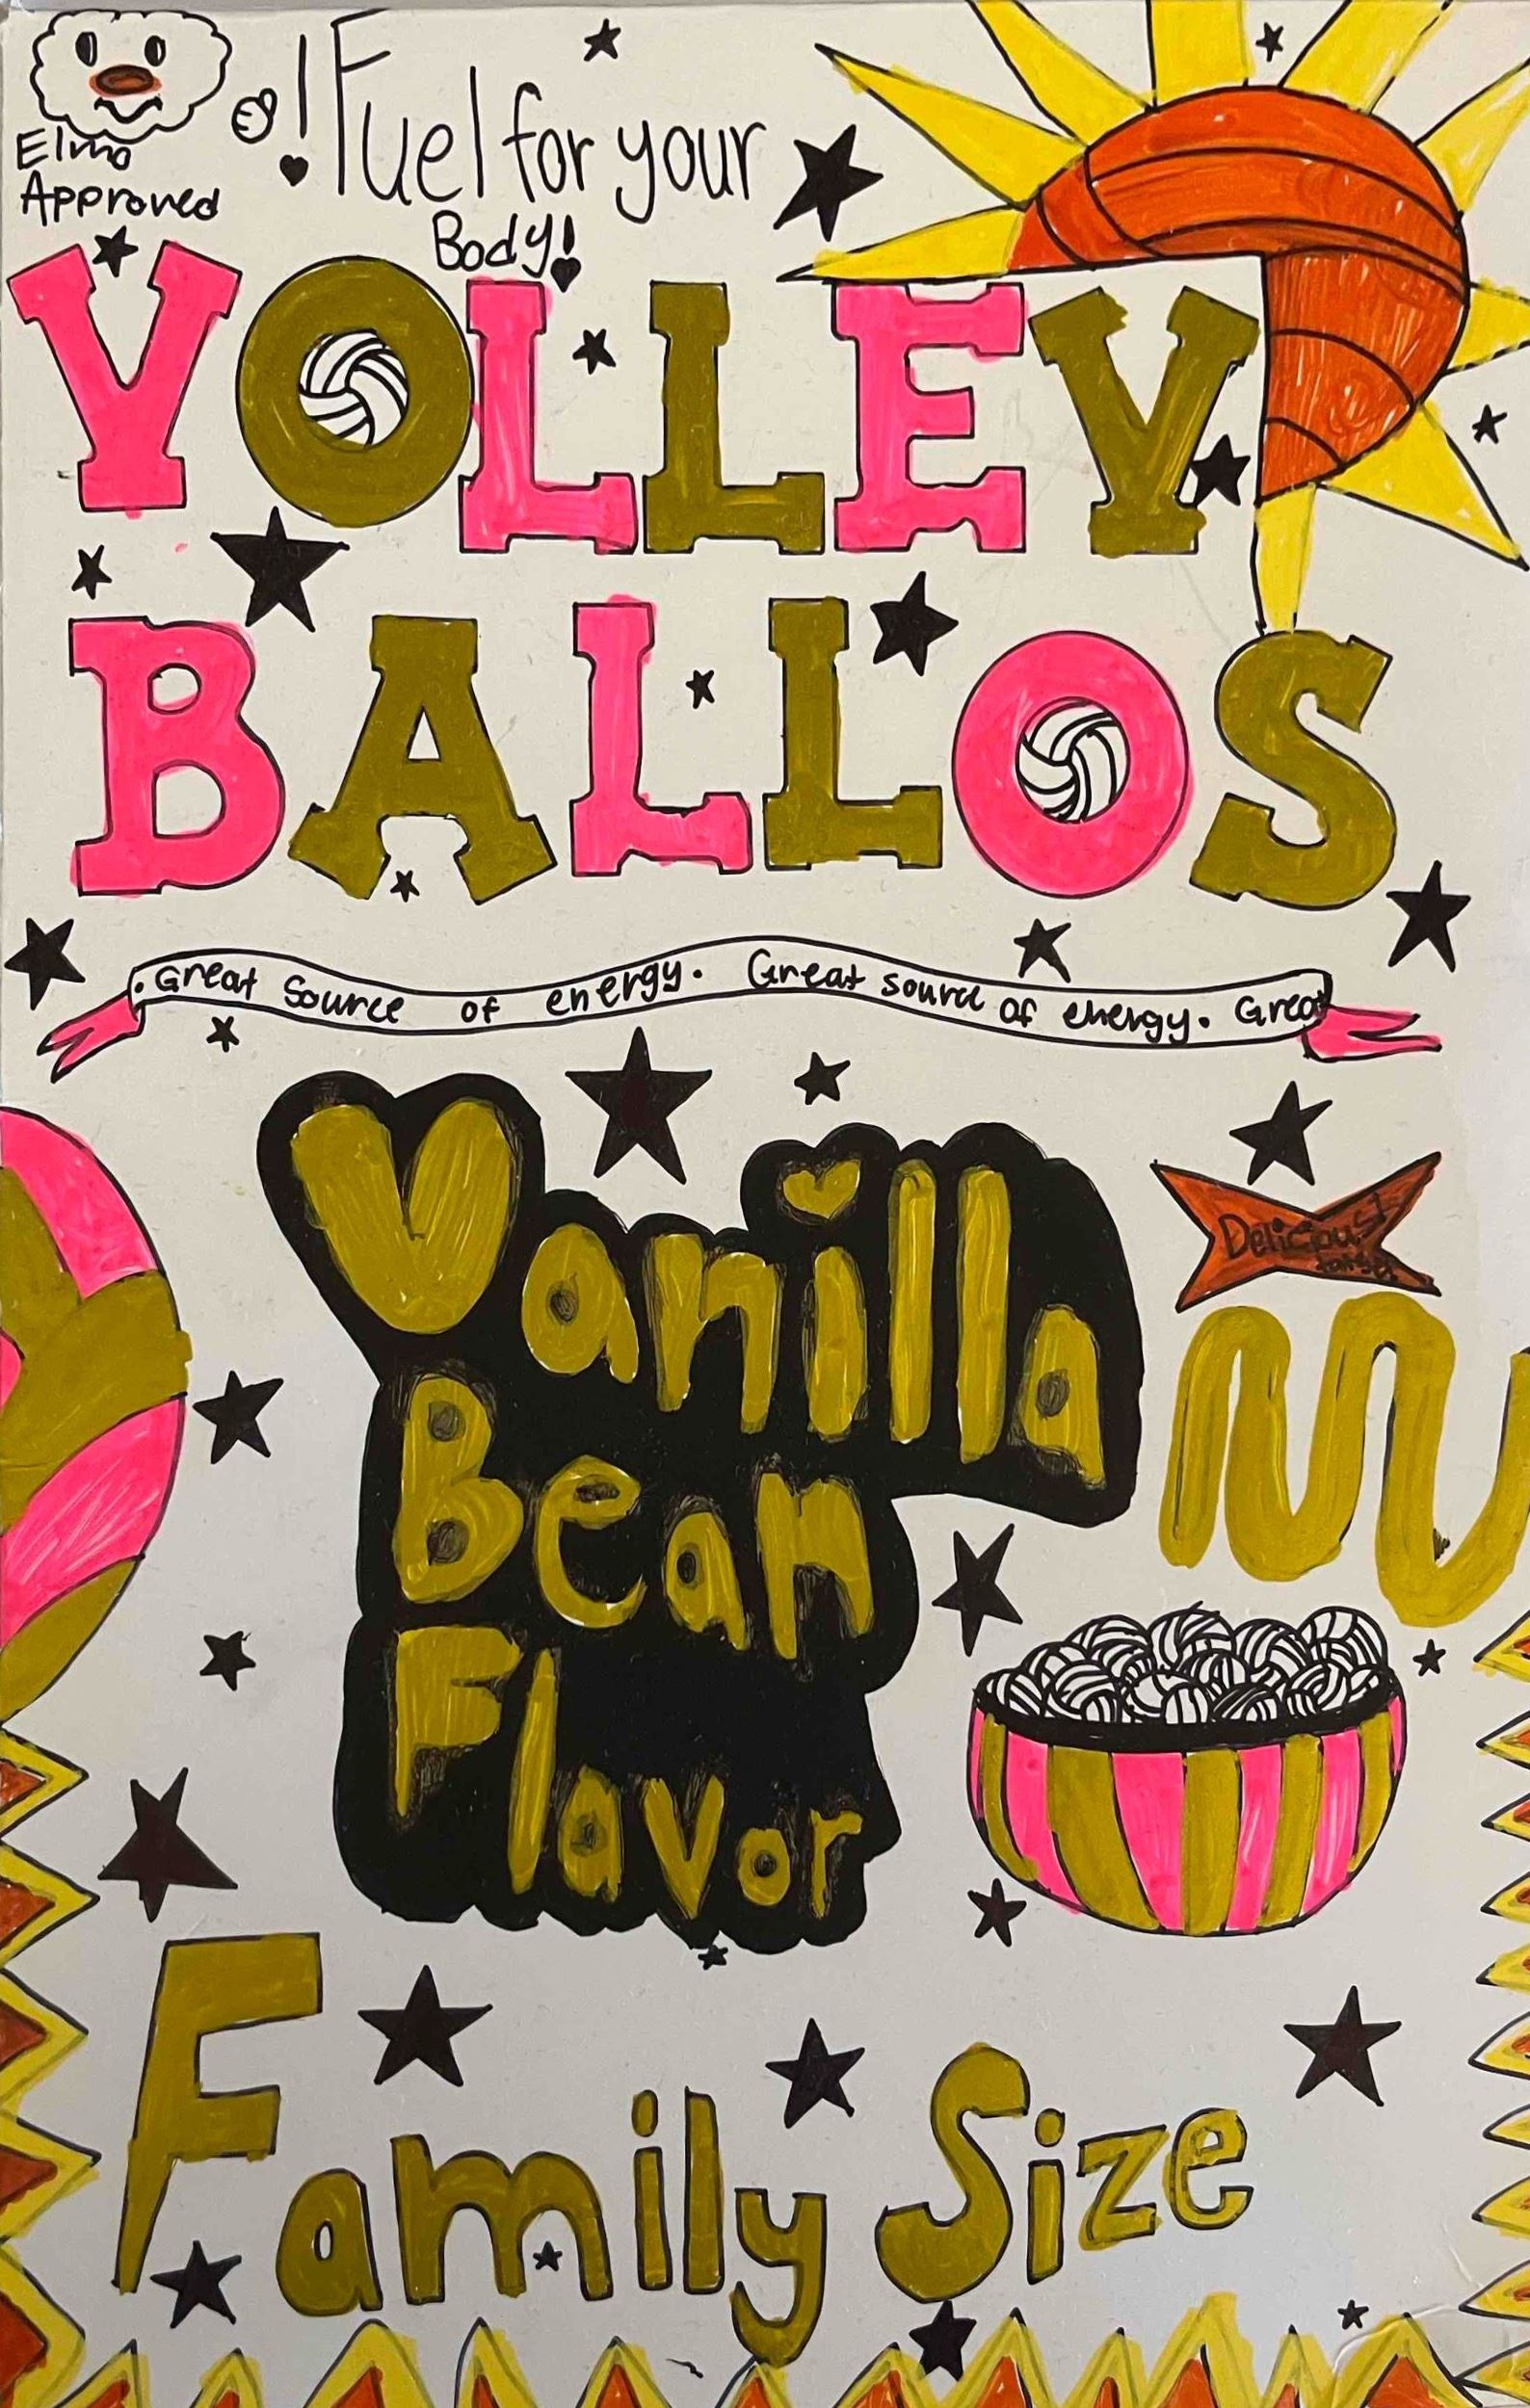 Elmo
Approved
! Fuel for your
Body!
VOLLEY
BALLOS
. Great Source of energy. Great source of energy. Great
Vanilla
Bean
Flavor
Delicious!
Family Size